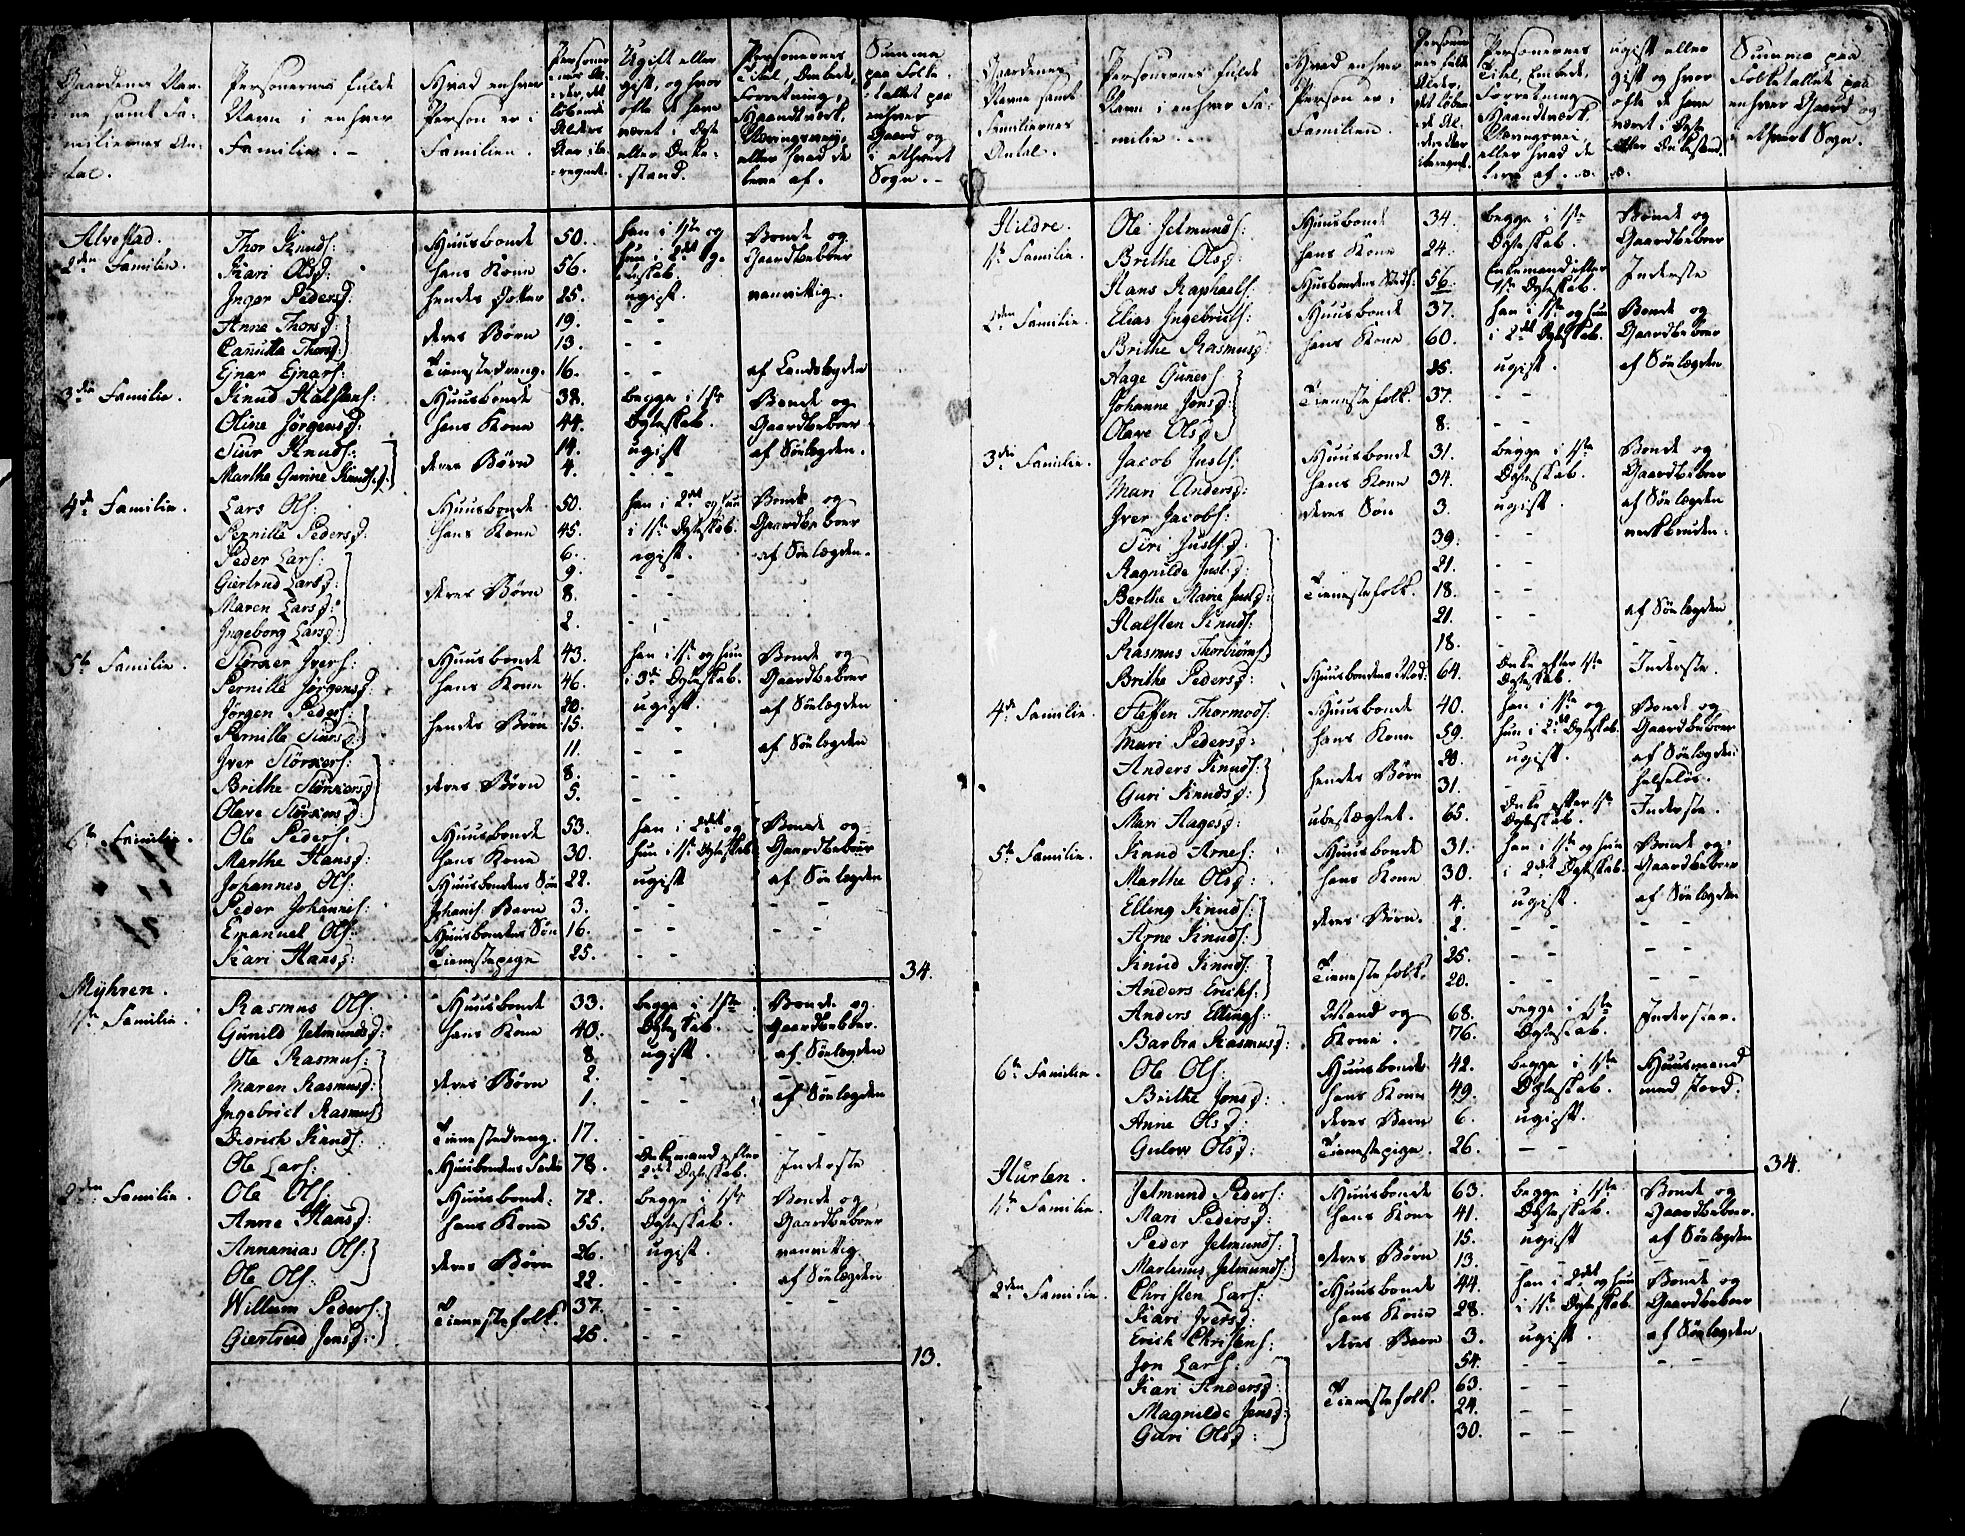 Gaardenes Nav-
ne samt Fa-
miliernes An-
tal.
Personernes fulde
Navn i enhver
Familie. -
Hvad enhver
Person er i
Familien. -
Ugift eller
gift, og hvor
ofte de have
været i Ægte
eller Enke-
stand.
Personernes
Titel, Embede,
Forretning,
Haandværk,
Næringsvei,
eller hvad de
leve af.
Summa
paa Folke-
tallet paa
enhver
Gaard og
i ethvert
Sogn. -
Alvestad.
2den Familie.
Thor Knuds: Huusbonde 50. han i 1ste og Bonde og
Kari Olsd: hans Kone 56. hun i 2det Æg- Gaardbeboer
Inger Pedersd: hendes Dotter 25. ugift. vanvittig.
Anne Thorsd: deres Børn 19. - -
Canutta Thorsd: 13. - -
Ejnar Ejnars: Tienestedreng. 16. - - af Landlægden
3die Familie. Knud Halstens: Huusbonde 38. begge i 1ste Bonde og
Oline Jørgensd: hans Kone 44. Ægteskab. Gaardbeboer
Siur Knuds: deres Børn 14. ugift af Søelægden.
Marthe Gurine Knudsd: 4. - -
4de Familie. Lars Ols: Huusbonde 50. han i 2det og hun Bonde og
Pernille Pedersd: hans Kone 45. i 1ste Ægteskab. Gaardbeboer
Peder Lars: 6. ugift. af Søelægden.
Giertrud Larsd: deres Børn 9. - -
Maren Larsd: 8. - -
Ingeborg Larsd: 2. - -
5te Familie. Størker Ivers: Huusbonde 43. han i 1ste og hun Bonde og
Pernille Jørgensd: hans Kone 46. i 3die Ægteskab. Gaardbeboer
Jørgen Peders: hendes Børn 20. ugift. af Søelægden
Pernille Siursd: 15. - -
Iver Størkers: deres Børn 11. - - af Søelægden
Brithe Størkersd: 8. - -
Olave Størkersd: 5. - -
6te Familie. Ole Peders: Huusbonde 53. han i 2det og Bonde og
Marthe Hansd: hans Kone 30. hun i 1ste Ægteskab Gaardbeboer
Johannes Ols: Huusbondens Søn 22. ugift af Søelægden
Peder Johannis: Johanis: Barn 3. - - - -
Emanuel Ols: Huusbondens Søn 16. - - - -
Kari Hansd: Tienestepige 25. - -
34.
Myhren.
1ste Familie. Rasmus Ols: Huusbonde 33. begge i 1ste Bonde og
Gunild Jetmundsd: hans Kone 40. Ægteskab. Gaardbeboer.
Ole Rasmus: deres Børn 8. ugift. af Søelægden
Maren Rasmusd: 2. - - - -
Ingebrict Rasmus: 1. - - af Søelægden
Didrich Knuds: Tienestedreng. 17. - - - -
Ole Lars: Huusbondens Fader 78. Enkemand efter 2det Ægteskab. Inderste
2den Familie. Ole Ols: Huusbonde 72. begge i 1ste Bonde og
Anne Hansd: hans Kone 55. Ægteskab. Gaardbeboer
Annanias Ols: deres Børn 26. ugift. vanvittig.
Ole Ols: 22. - - af Søelægden
Willum Peders: Tienestefolk. 37. - - - -
Giertrud Jensd: 25. - -
13.
Gaardenes
Navne samt
Familiernes
Antal.
Personernes fulde
Navn i enhver Fa-
milie. -
Hvad enhver
Person er i
Familien.
Personernes
Titel, Embede,
Forretning,
Haandværk,
Næringsvei,
eller hvad de
leve af.
ugift eller
gift og hvor
ofte de have
været i Ægte
eller Enkestand.
Summa paa
Folketallet paa
enhver Gaard og
i ethvert Sogn.
Hildre.
1ste Familie. Ole Jetmunds: Huusbonde 34. begge i 1ste Bonde og
Brithe Olsd: hans Kone 24. Ægteskab. Gaardbeboer
Hans Raphaels: 56. Enkemand efter 1ste Ægteskab. Inderste
2den Familie. Elias Ingebricts: Huusbonde 37. han i 1ste og hun Bonde og
Brithe Rasmusd: hans Kone 60. i 2det Ægteskab. Gaardbeboer
Aage Guners: Tienestefolk. 25. ugift. af Søelægden
Johanne Jonsd: 37. - -
Olave Olsd: 8. - -
3die Familie. Jacob Justs: Huusbonde 31. begge i 1ste Bonde og
Mari Andersd: hans Kone 34. Ægteskab. Gaardbeboer
Iver Jacobs: deres Søn 3. ugift. af Søelægden
Siri Justsd: Tienestefolk. 39. - -
Ragnilde Justsd: 21. - -
Berthe Marie Justsd: 18. - -
Halsten Knuds: 21. - - af Søelægden
Rasmus Thorbiørns: 18. - - - -
Brithe Pedersd: Huusbondens Mod: 64. Enke efter 1ste Ægteskab. Inderste.
4de Familie. Steffen Thormods: Huusbonde 40. han i 1ste og Bonde og
Mari Pedersd: hans Kone 59. hun i 2det Ægteskab. Gaardbeboer
Anders Knuds: hendes Børn 28. ugift. af Søelægden
Guri Knudsd: 31. - - helseløs.
Mari Hagesd: ubeslægtet. 65. Enke efter 1ste Ægteskab. Inderste.
5te Familie. Knud Arnes: Huusbonde 31. han i 1ste og hun Bonde og
Marthe Olsd: hans Kone 30. i 2det Ægteskab. Gaardbeboer
Elling Knuds: deres Børn. 4. ugift. af Søelægden
Arne Knuds: 2. - - - -
Knud Knuds: Tienestefolk. 25. - - - -
Anders Ericks: 20. - - - -
Anders Ellings: Mand og 68. begge i 1ste Inderster.
Barbra Rasmusd: Kone. 76. Ægteskab.
6te Familie. Ole Ols: Huusbonde 42. begge i 1ste Huusmand
Brithe Jonsd: hans Kone 49. Ægteskab. med Jord.
Anne Olsd: deres Barn 6. ugift.
Gulow Olsd: Tienestepige. 26. - -
34.
1ste Familie. Jetmund Peders: Huusbonde 63. begge i 1ste Bonde og
Mari Pedersd: hans Kone 41. Ægteskab. Gaardbeboer.
Peder Jetmunds: deres Børn 15. ugift af Søelægden
Martinus Jetmunds: 13. - - - -
2den Familie. Christen Lars: Huusbonde 44. han i 2det og hun Bonde og
Kari Iversd: hans Kone 28. i 1ste Ægteskab. Gaardbeboer
Erick Christens: deres Barn 3. ugift. af Søelægden
Jon Lars: Tienestefolk. 54. - - - -
Kari Andersd: 63. - -
Magnilde Jensd: 24. - -
Guri Olsd: 30. - -